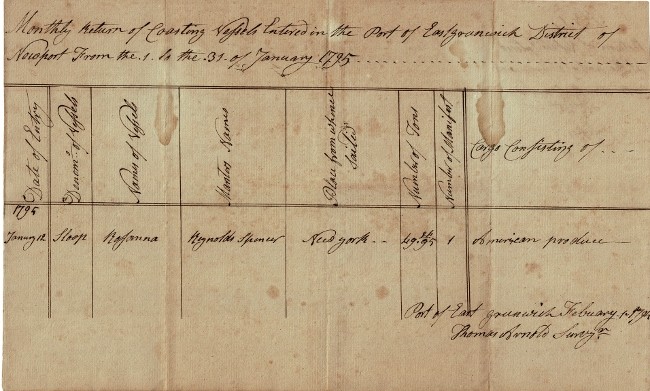 Monthly Return of Coasting Vessels Entered in the Port of Eastgreenwich District of
Newport From the 1 to the 31 of January 1795
Date of Entry
Denomn. of Vessels
Names of Vessels
Masters Names
Place from whence Sailed
Number of Tons
Number of Manifest
Cargo Consisting of
1795
January 12 Sloop Rosanna Reynolds Spencer New york 49 95 1 American produce
Port of East greenwich Febuary 1
Thomas Arnold Survyr